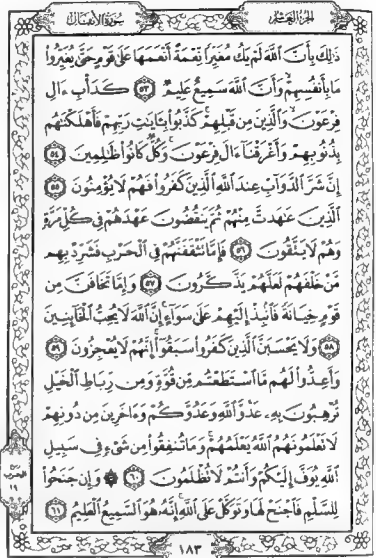 الجزء العاشر
سورة الأنفال
ذَٰلِكَ بِأَنَّ ٱللَّهَ لَمْ يَكُ مُغَيِّرًا نِّعْمَةً أَنْعَمَهَا عَلَىٰ قَوْمٍ حَتَّىٰ يُغَيِّرُوا۟
مَا بِأَنفُسِهِمْ وَأَنَّ ٱللَّهَ سَمِيعٌ عَلِيمٌ ٥٣ كَدَأْبِ ءَالِ
فِرْعَوْنَ وَٱلَّذِينَ مِن قَبْلِهِمْ كَذَّبُوا۟ بِـَٔايَٰتِ رَبِّهِمْ فَأَهْلَكْنَٰهُم
بِذُنُوبِهِمْ وَأَغْرَقْنَآ ءَالَ فِرْعَوْنَ وَكُلٌّ كَانُوا۟ ظَٰلِمِينَ ٥٤
إِنَّ شَرَّ ٱلدَّوَآبِّ عِندَ ٱللَّهِ ٱلَّذِينَ كَفَرُوا۟ فَهُمْ لَا يُؤْمِنُونَ ٥٥
ٱلَّذِينَ عَٰهَدتَّ مِنْهُمْ ثُمَّ يَنقُضُونَ عَهْدَهُمْ فِى كُلِّ مَرَّةٍ
وَهُمْ لَا يَتَّقُونَ ٥٦ فَإِمَّا تَثْقَفَنَّهُمْ فِى ٱلْحَرْبِ فَشَرِّدْ بِهِم
مَّنْ خَلْفَهُمْ لَعَلَّهُمْ يَذَّكَّرُونَ ٥٧ وَإِمَّا تَخَافَنَّ مِن
قَوْمٍ خِيَانَةً فَٱنۢبِذْ إِلَيْهِمْ عَلَىٰ سَوَآءٍ إِنَّ ٱللَّهَ لَا يُحِبُّ ٱلْخَآئِنِينَ
٥٨ وَلَا يَحْسَبَنَّ ٱلَّذِينَ كَفَرُوا۟ سَبَقُوٓا۟ إِنَّهُمْ لَا يُعْجِزُونَ ٥٩
وَأَعِدُّوا۟ لَهُم مَّا ٱسْتَطَعْتُم مِّن قُوَّةٍ وَمِن رِّبَاطِ ٱلْخَيْلِ
تُرْهِبُونَ بِهِۦ عَدُوَّ ٱللَّهِ وَعَدُوَّكُمْ وَءَاخَرِينَ مِن دُونِهِمْ
لَا تَعْلَمُونَهُمُ ٱللَّهُ يَعْلَمُهُمْ وَمَا تُنفِقُوا۟ مِن شَىْءٍ فِى سَبِيلِ
ٱللَّهِ يُوَفَّ إِلَيْكُمْ وَأَنتُمْ لَا تُظْلَمُونَ ٦٠ ۞ وَإِن جَنَحُوا۟
لِلسَّلْمِ فَٱجْنَحْ لَهَا وَتَوَكَّلْ عَلَى ٱللَّهِ إِنَّهُۥ هُوَ ٱلسَّمِيعُ ٱلْعَلِيمُ ٦١
الحزب
١٩
١٨٣